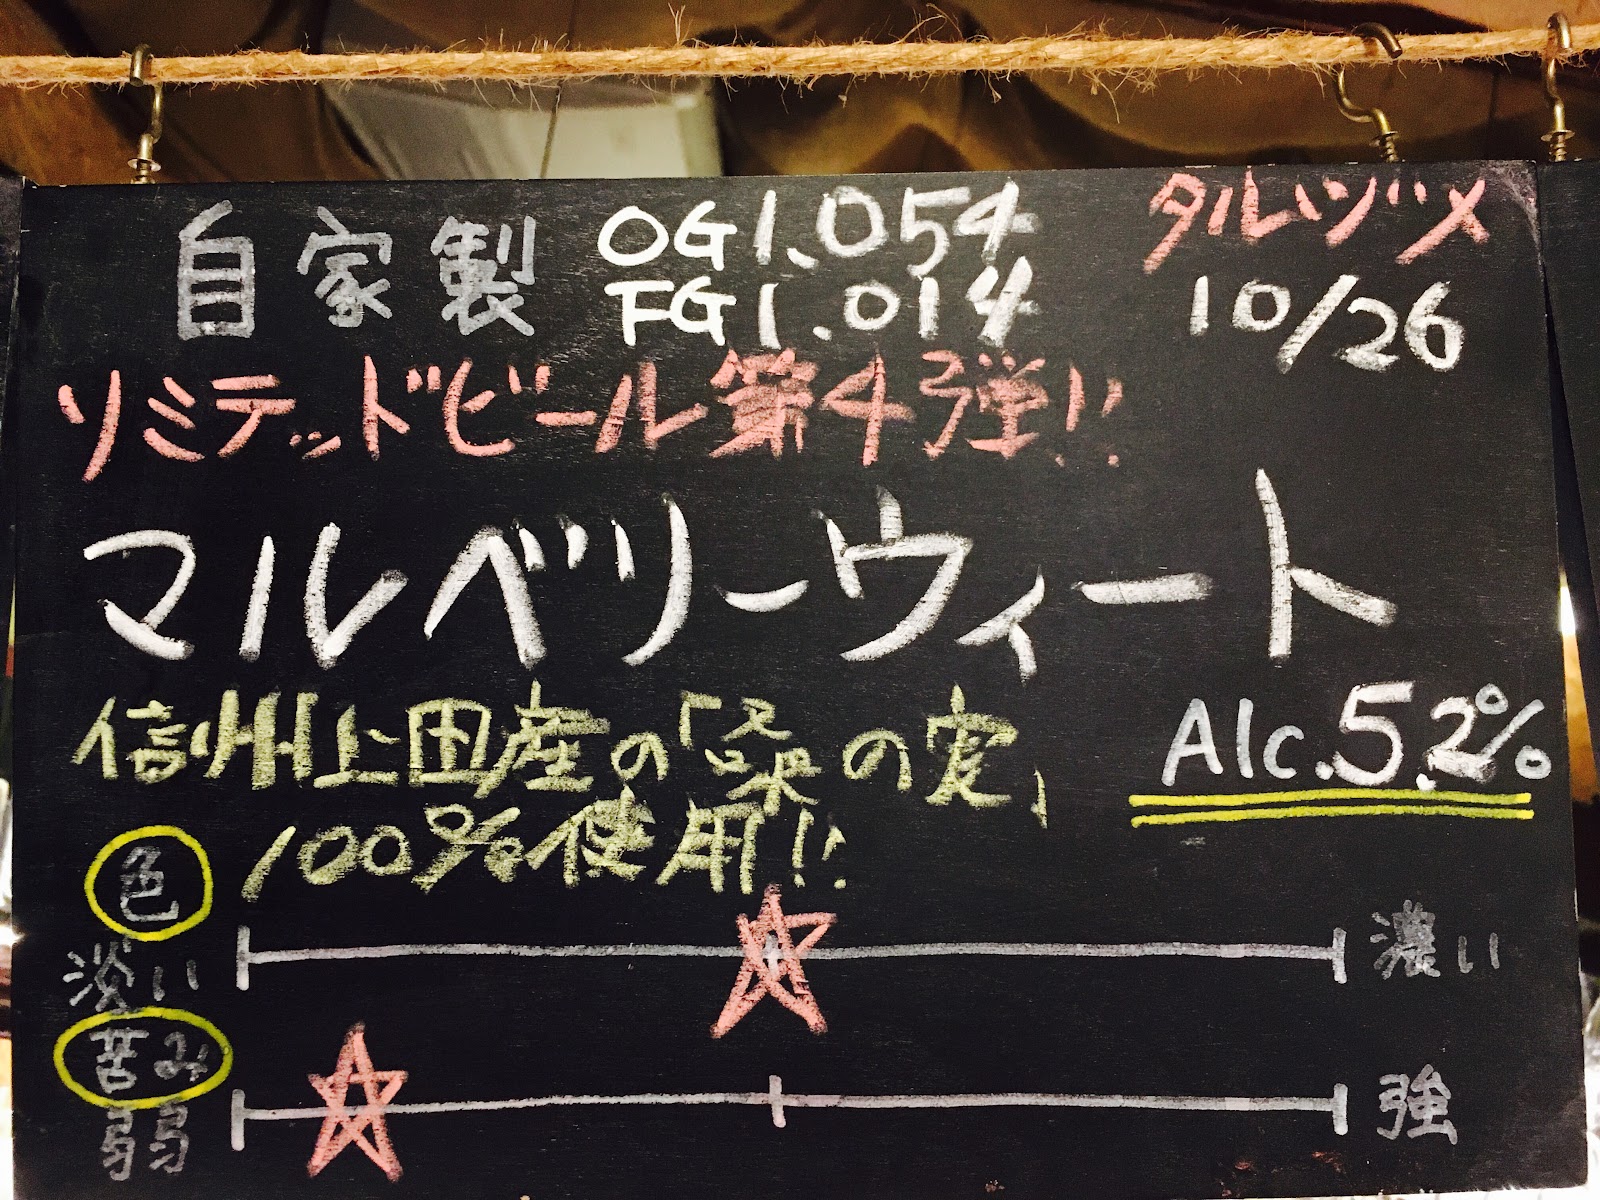 自家製
OG1.054
FG1.014
タルヅメ
10/26
リミテッドビール第4弾!!
マルベリーウィート
信州上田産の「桑の実」
100%使用!!
Alc.5.2%
色
淡い
濃い
苦み
弱
強